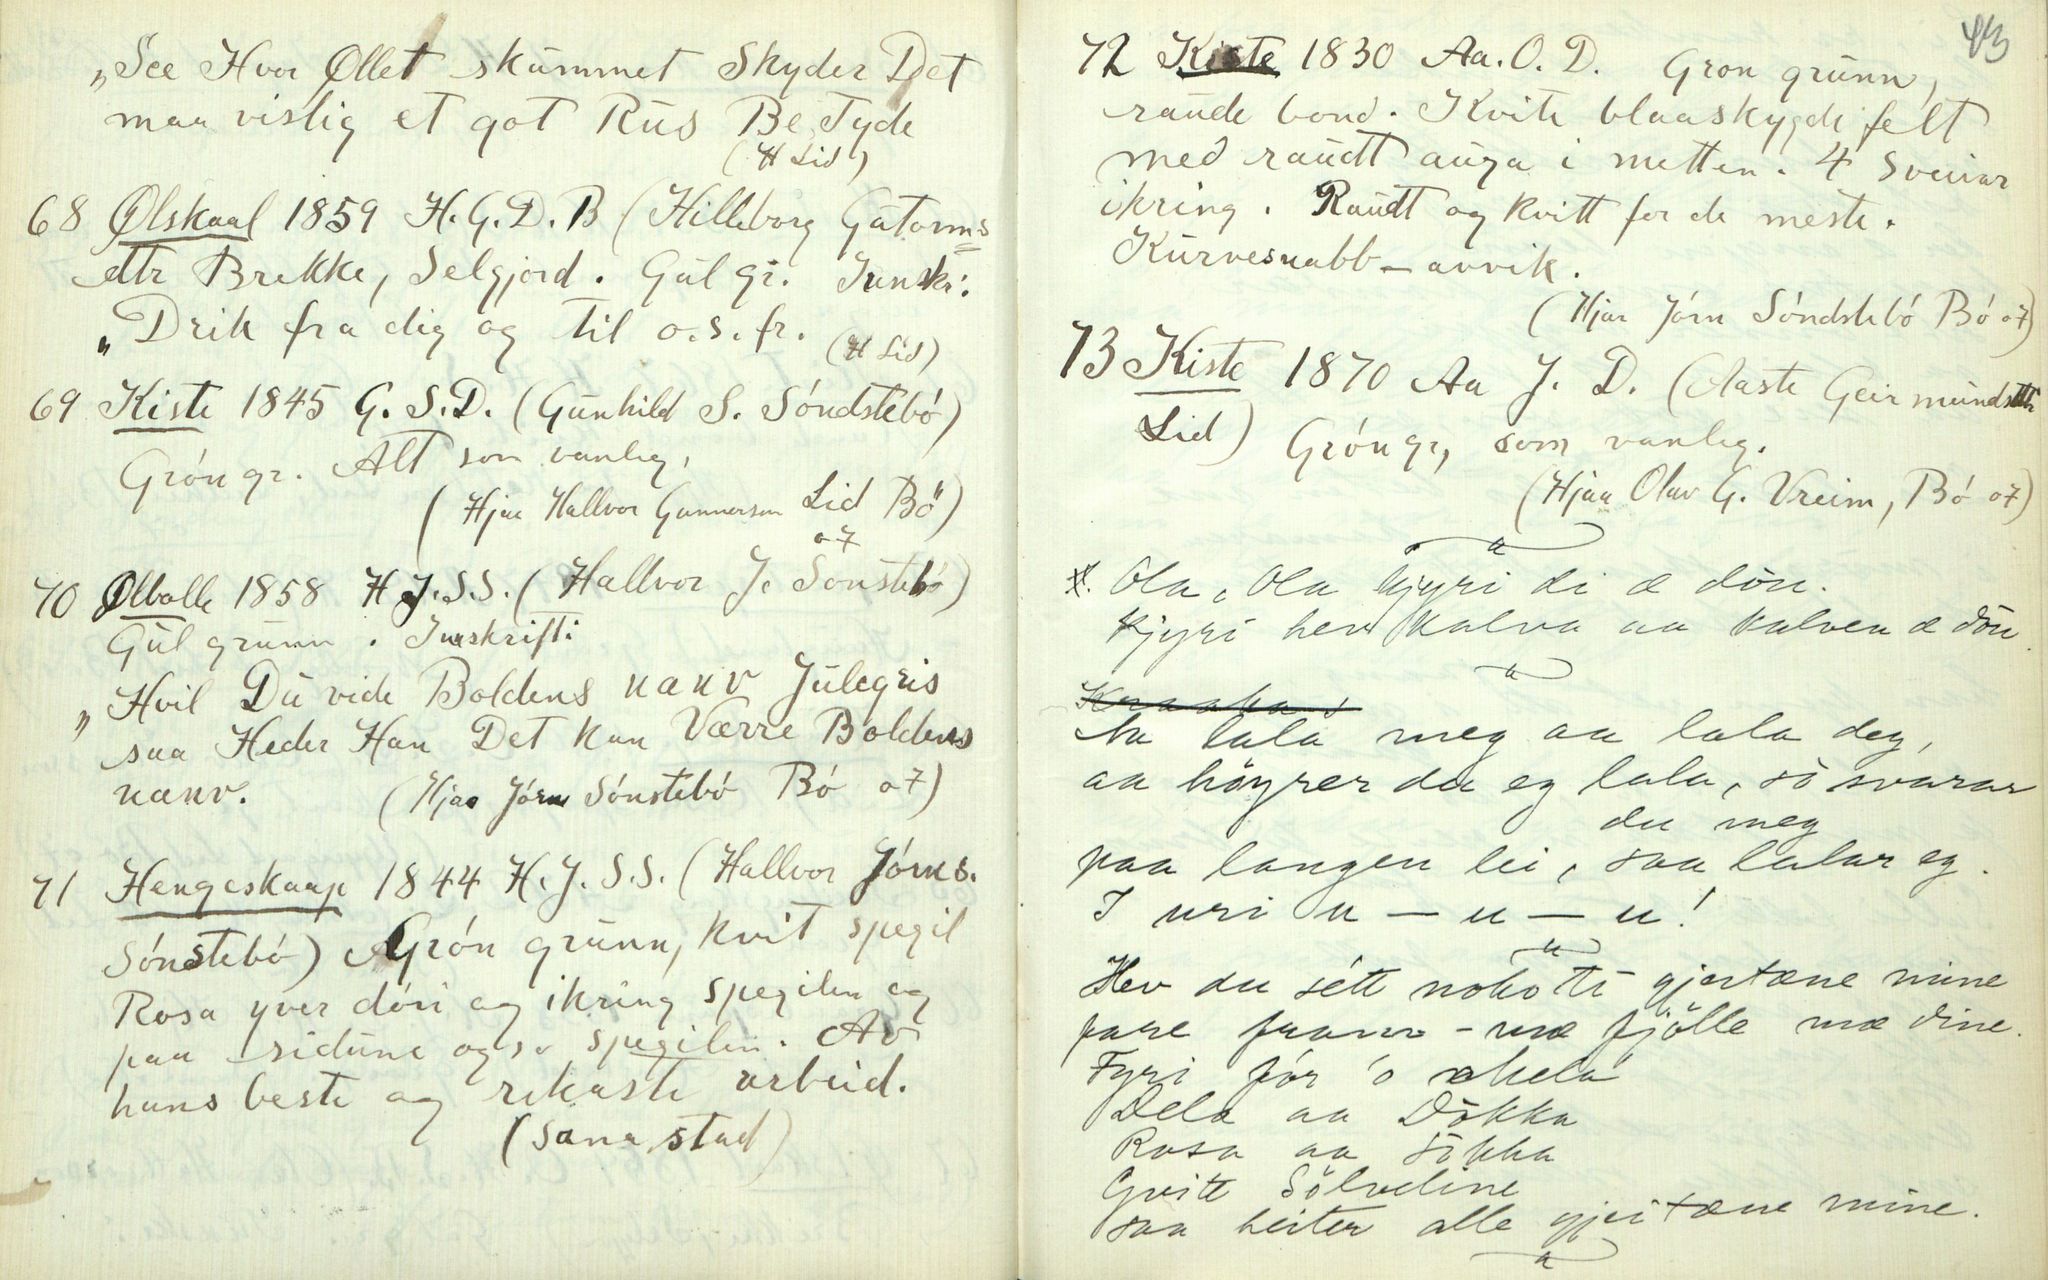 „See Hvor Øllet skummet Skyder Det
maa vislig et got Rus Be Tyde
(H Lid)
68 Ølskaal 1859 H. G. D. B (Hilleborg Gutorms
dtr Brekke, Selgjord. Gul gr. Innskr:
„Drik fra dig og til o. s. fr. (H Lid)
69 Kiste 1845 G. S. D. (Gunhild S. Sóndstebó)
Grón gr. Alt som vanleg,
(Hjaa Hallvor Gunnerson Lid Bö)
07
70 Ølbolle 1858 H J. S. S. (Hallvor J. Sónstebó)
Gul grunn. Innskrift:
„Hvil Du vide Boldens nanv Julegris
saa Heder Han Det kan Værre Boldens
nanv. (Hjaa Jórn Sónstebó Bó 07)
71 Hengeskaap 1844 H. J. S. S. (Hallvor Jórns.
Sónstebó) Grón grunn, kvit spegil
Rosa yver dóri og ikring spegilen og
paa sidune ogso spegilen. Av
hans beste og rikaste arbeid.
(Sana stad)
43
72 Kiste 1830 Aa. O. D. Gron grunn,
raude bond. Kvite blaaskygde felt
med raudt auga i mitten. 4 Sveivar
ikring. Raudt og kvitt for de meste.
Kurvesnabb - avvik.
(Hjaa Jórn Sóndstebó Bó 07)
73 Kiste 1870 Aa J. D. (Aaste Geirmundsdtr
Lid) Grón gr, som vanleg.
(Hjaa Olav G. Vreim, Bó 07)
Ola, Ola kjyri di æ dön.
Kjyri hev kalva aa kalven æ dön.
Kraaka s
Aa lala meg aa lala deg,
aa höyrer du eg lala, så svarar
du meg
paa langen lei, saa lalar eg.
I uri u — u — u!
Hev du sétt noko ti gjeitæne mine
fare fram - mæ fjölle mæ dine.
Fyri fór 'o
Dela aa Dökka
Rosa aa Sökka
Gvite Sölveline
saa heiter alle gjeitæne mine.